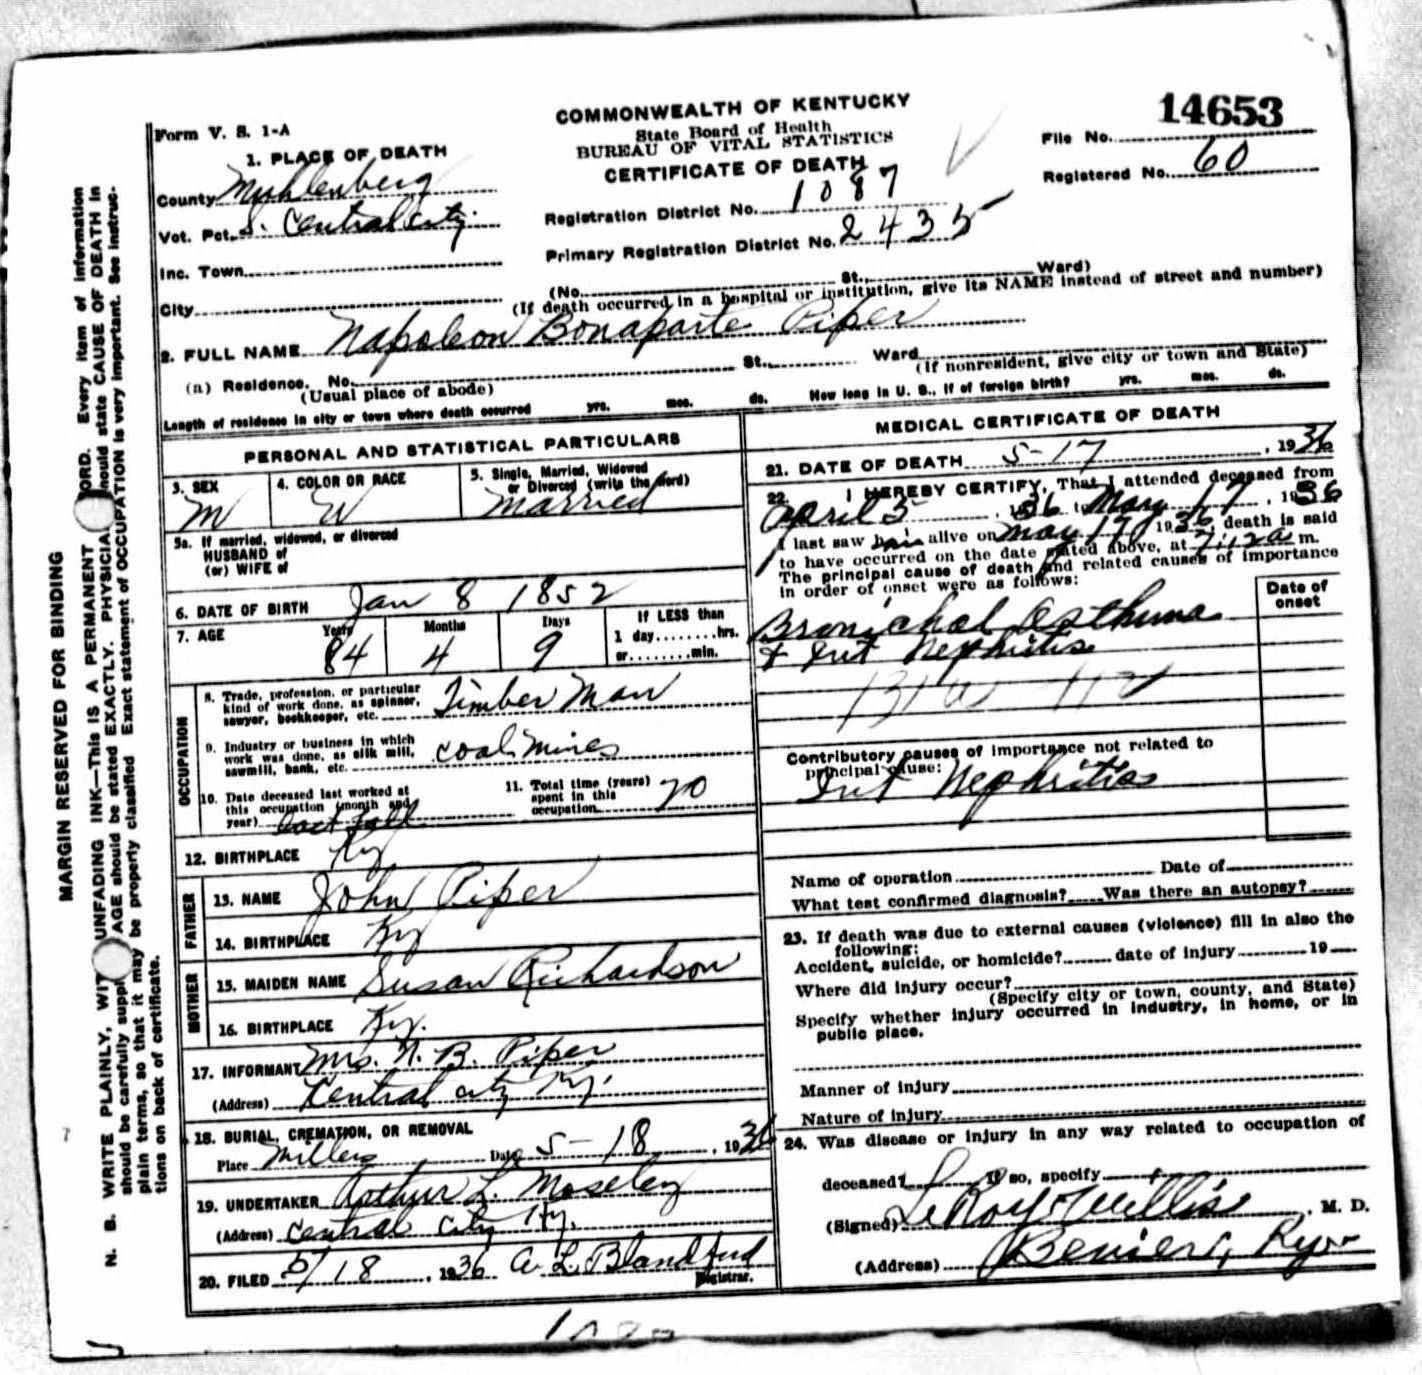 Form V. S. 1-A
COMMONWEALTH OF KENTUCKY
State Board of Health
BUREAU OF VITAL STATISTICS
CERTIFICATE OF DEATH
14653
File No.
Registered No. 60
1. PLACE OF DEATH
County Muhlenberg
Vot. Pct. S. Central City.
Inc. Town
City
Registration District No. 1087
Primary Registration District No. 2435
(No. St., Ward)
(If death occurred in a hospital or institution, give its NAME instead of street and number)
2. FULL NAME Napoleon Bonaparte Piper
(a) Residence. No. St., Ward
(Usual place of abode) (If nonresident, give city or town and State)
Length of residence in city or town where death occurred yrs. mos. ds. How long in U. S., if of foreign birth? yrs. mos. ds.
PERSONAL AND STATISTICAL PARTICULARS
3. SEX M
4. COLOR OR RACE W
5. Single, Married, Widowed or Divorced (write the word) Married
5a. If married, widowed, or divorced
HUSBAND of
(or) WIFE of
6. DATE OF BIRTH Jan 8 1852
7. AGE Years 84 Months 4 Days 9 If LESS than 1 day........hrs. or........min.
OCCUPATION
8. Trade, profession, or particular kind of work done, as spinner, sawyer, bookkeeper, etc. Timber Man
9. Industry or business in which work was done, as silk mill, sawmill, bank, etc. coal mines
10. Date deceased last worked at this occupation (month and year) last fall
11. Total time (years) spent in this occupation 20
12. BIRTHPLACE Ky
FATHER
13. NAME John Piper
14. BIRTHPLACE Ky
MOTHER
15. MAIDEN NAME Susan Richardson
16. BIRTHPLACE Ky.
17. INFORMANT Mrs. N. B. Piper
(Address) Central City Ky.
18. BURIAL, CREMATION, OR REMOVAL
Place Millers Date 5-18, 1936
19. UNDERTAKER Arthur L. Moseley
(Address) Central City Ky.
20. FILED 5/18, 1936 A. L. Blandford
Registrar.
MEDICAL CERTIFICATE OF DEATH
21. DATE OF DEATH 5-17, 1936
22. I HEREBY CERTIFY, That I attended deceased from
April 5, 1936 to May 17, 1936
I last saw him alive on May 17 1936, death is said
to have occurred on the date stated above, at 7:12 a m.
The principal cause of death and related causes of importance
in order of onset were as follows:
Date of onset
Bronichal Asthma
+ Int Nephritis
Contributory causes of importance not related to
principal cause:
Int Nephritis
Name of operation Date of
What test confirmed diagnosis? Was there an autopsy?
23. If death was due to external causes (violence) fill in also the
following:
Accident, suicide, or homicide? date of injury 19
Where did injury occur?
(Specify city or town, county, and State)
Specify whether injury occurred in industry, in home, or in
public place.
Manner of injury
Nature of injury
24. Was disease or injury in any way related to occupation of
deceased? If so, specify
(Signed) LeRoy Willis, M. D.
(Address)
MARGIN RESERVED FOR BINDING
N. B. WRITE PLAINLY, WITH UNFADING INK—THIS IS A PERMANENT RECORD. Every item of information
should be carefully supplied. AGE should be stated EXACTLY. PHYSICIANS should state CAUSE OF DEATH in
plain terms, so that it may be properly classified. Exact statement of OCCUPATION is very important. See instruc-
tions on back of certificate.